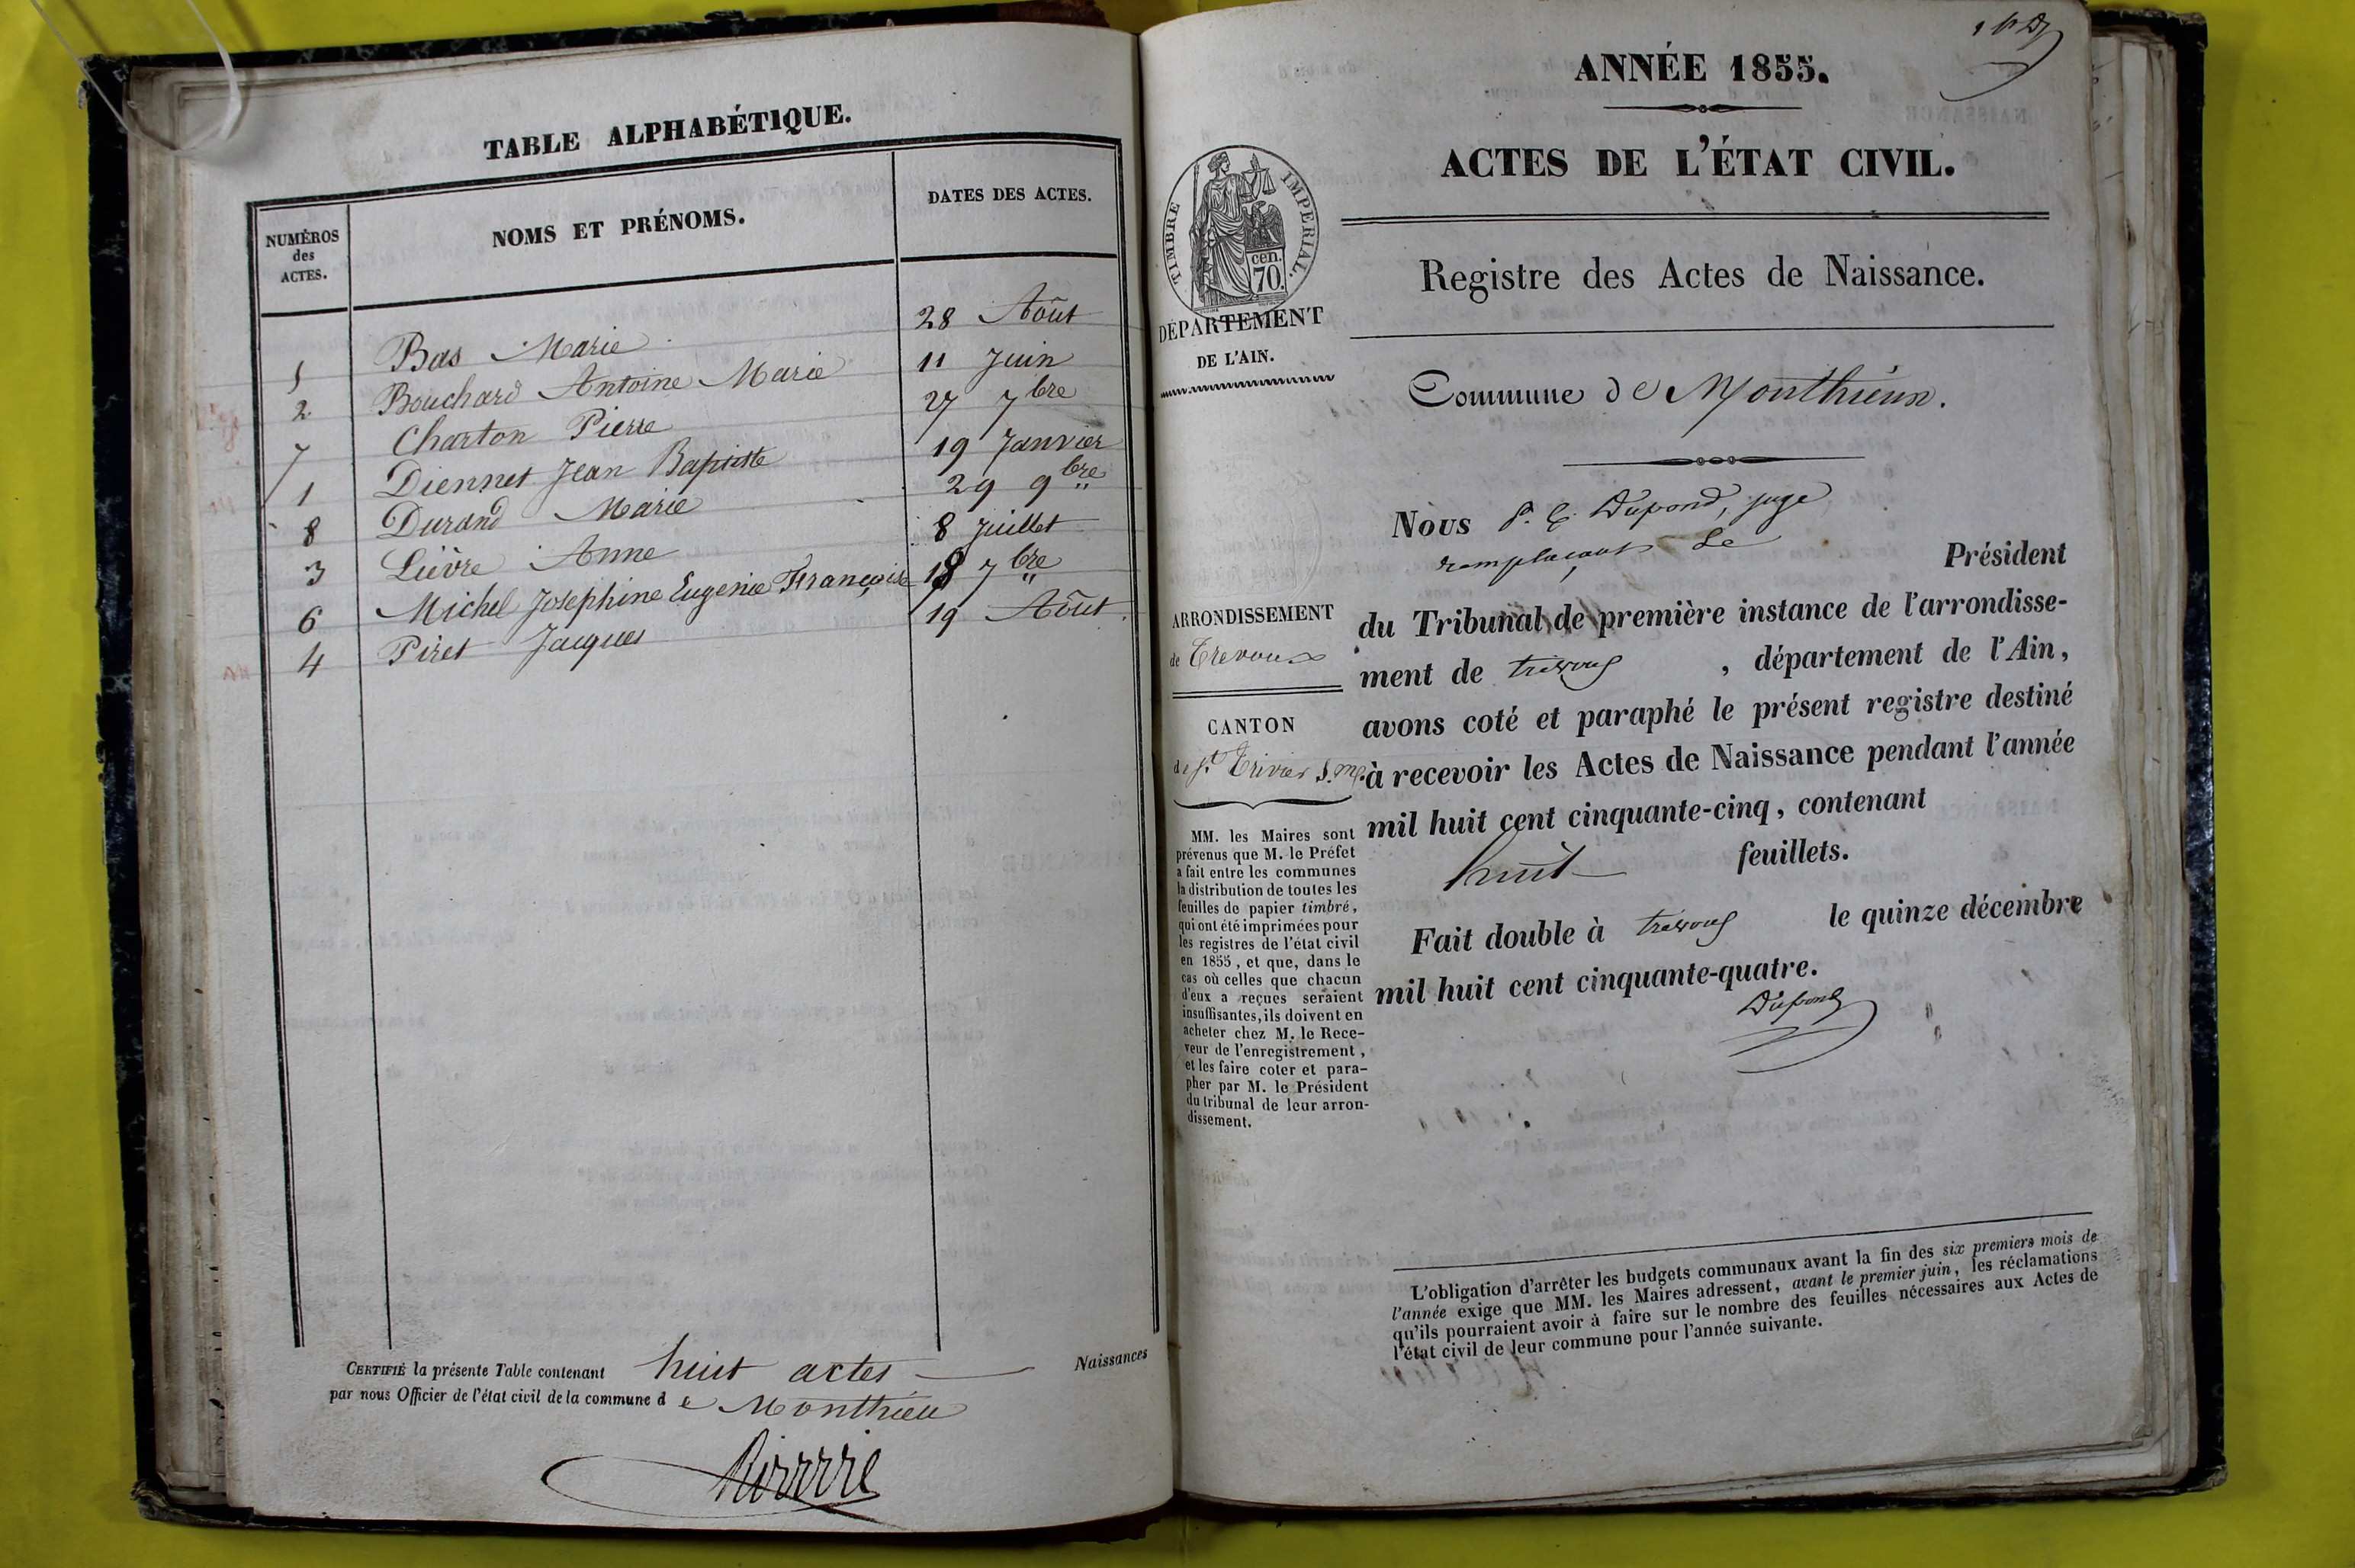 TABLE ALPHABÉTIQUE.
NUMÉROS des ACTES. NOMS ET PRÉNOMS. DATES DES ACTES.
5 Bas Marie 28 Août
2 Bouchard Antoine Marie 11 Juin
7 Charton Pierre 27 7bre
1 Diennet Jean Baptiste 19 Janvier
8 Durand Marie 29 9bre
3 Lièvre Anne 8 Juillet
6 Michel Josephine Eugenie Françoise 18 7bre
4 Piret Jacques 19 Août
CERTIFIÉ la présente Table contenant huit actes Naissances
par nous Officier de l'état civil de la commune de Monthieu
ANNÉE 1855.
ACTES DE L'ÉTAT CIVIL.
TIMBRE IMPERIAL.
cen.
70.
Registre des Actes de Naissance.
DÉPARTEMENT
DE L'AIN.
Commune de Monthieux.
Nous P. E. Dupond, juge
remplaçant Le Président
du Tribunal de première instance de l'arrondisse-
ment de trévoux, département de l'Ain,
avons coté et paraphé le présent registre destiné
à recevoir les Actes de Naissance pendant l'année
mil huit cent cinquante-cinq, contenant
huit feuillets.
Fait double à trévoux le quinze décembre
mil huit cent cinquante-quatre.
Dupond
ARRONDISSEMENT
de Trevoux
CANTON
de St Trivier s. m.
MM. les Maires sont
prévenus que M. le Préfet
a fait entre les communes
la distribution de toutes les
feuilles de papier timbré,
qui ont été imprimées pour
les registres de l'état civil
en 1855, et que, dans le
cas où celles que chacun
d'eux a reçues seraient
insuffisantes, ils doivent en
acheter chez M. le Rece-
veur de l'enregistrement,
et les faire coter et para-
pher par M. le Président
du tribunal de leur arron-
dissement.
L'obligation d'arrêter les budgets communaux avant la fin des six premiers mois de
l'année exige que MM. les Maires adressent, avant le premier juin, les réclamations
qu'ils pourraient avoir à faire sur le nombre des feuilles nécessaires aux Actes de
l'état civil de leur commune pour l'année suivante.